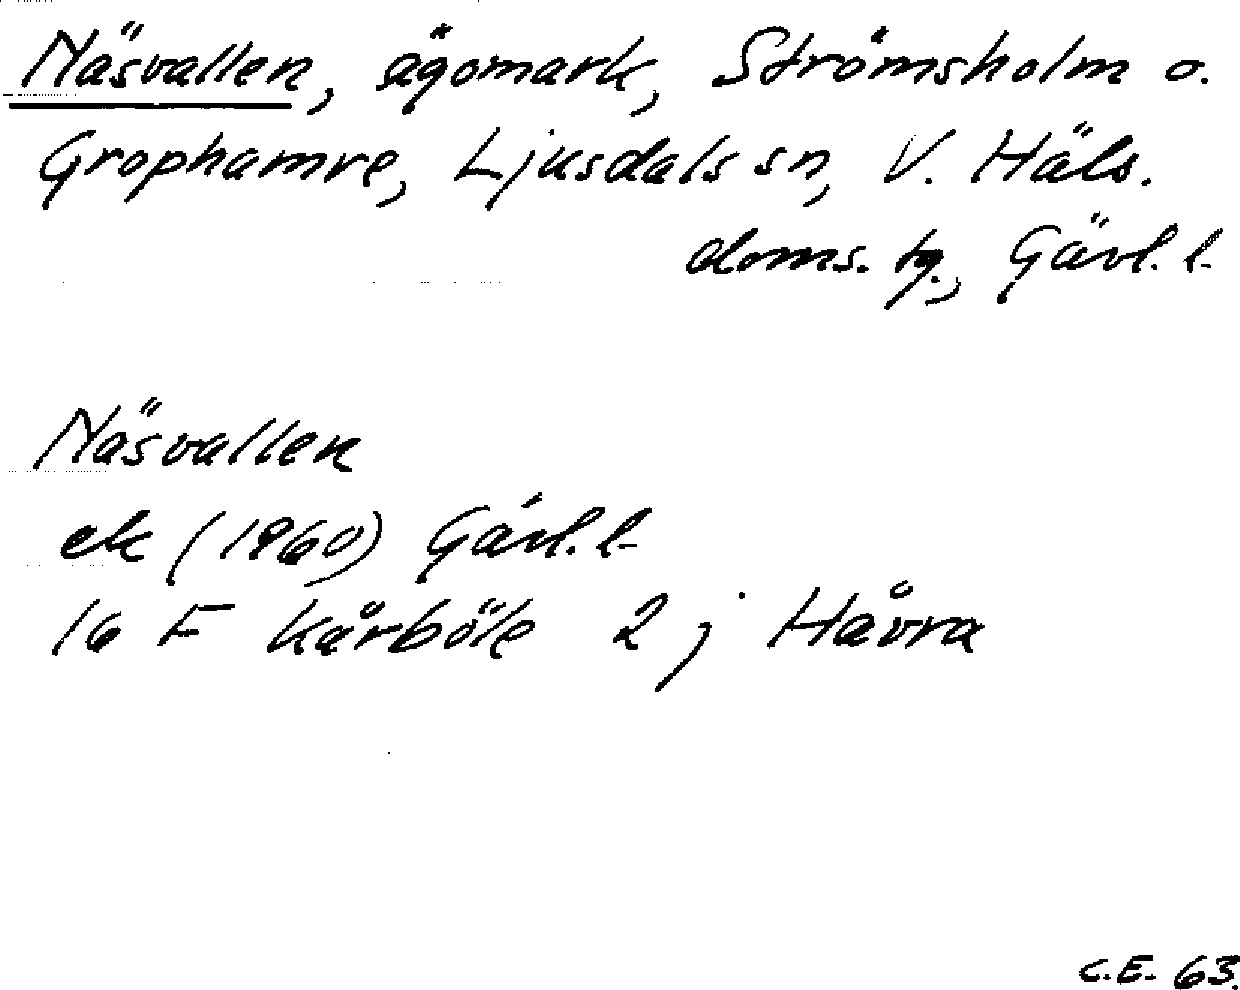 Näsvallen, ägomark, Strömsholm o.
Grophamre, Ljusdals sn, V. Häls.
doms. tg., Gävl. l.
Näsvallen
ek (1960) Gävl. l.
16 F Kårböle 2 j Håvra
C.E. 63.